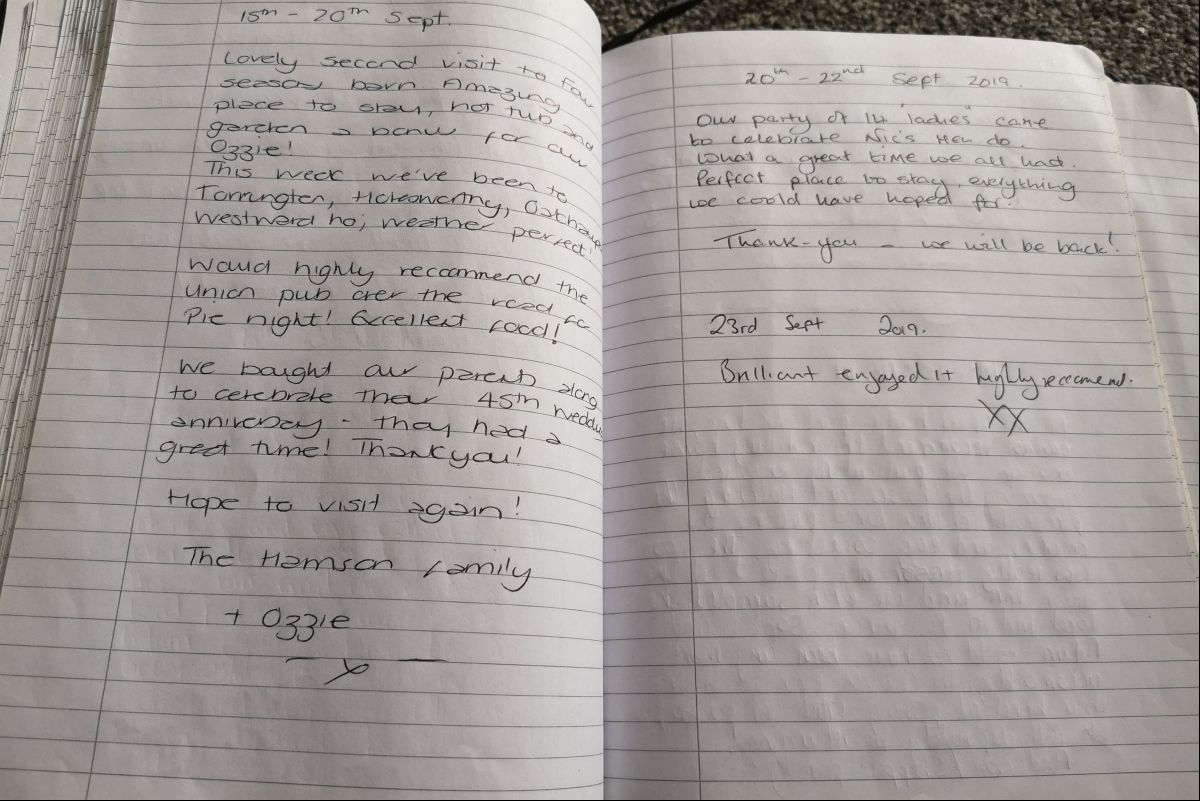 15th - 20th Sept.
Lovely second visit to Four
season barn Amazing
place to stay, hot tub and
garden a bonus for our
Ozzie!
This week we've been to
Torrington,
Westward ho, weather perfect!
Would highly reccommend the
Union pub over the road for
Pie night! Excellent food!
We bought our parents along
to celebrate their 45th wedding
anniversay - they had a
great time! Thankyou!
Hope to visit again!
The Hamson family
+ Ozzie
x
20th - 22nd Sept 2019.
Our party of 14 "ladies" came
to celebrate Nic's Hen do.
What a great time we all had.
Perfect place to stay, everything
we could have hoped for!
Thank-you - we will be back!
23rd Sept 2019.
Brilliant engayed it highly reccomend.
XX